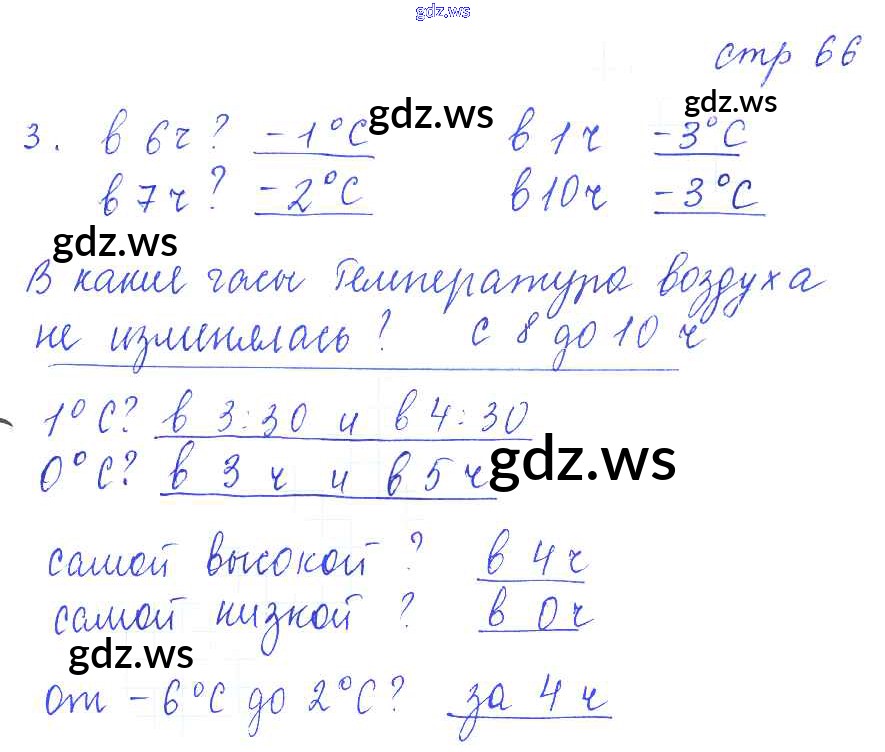 gdz.ws
стр 66
gdz.ws gdz.ws
3. в 6ч? -1°C в 1ч -3°C
в 7ч? -2°C в 10ч -3°C
gdz.ws
В какие часы температура воздуха
не изменялась? с 8 до 10 ч
1°C? в 3:30 и в 4:30
0°C? в 3 ч и в 5 ч
gdz.ws
самой высокой? в 4 ч
самой низкой? в 0ч
gdz.ws
от -6°C до 2°C? за 4 ч